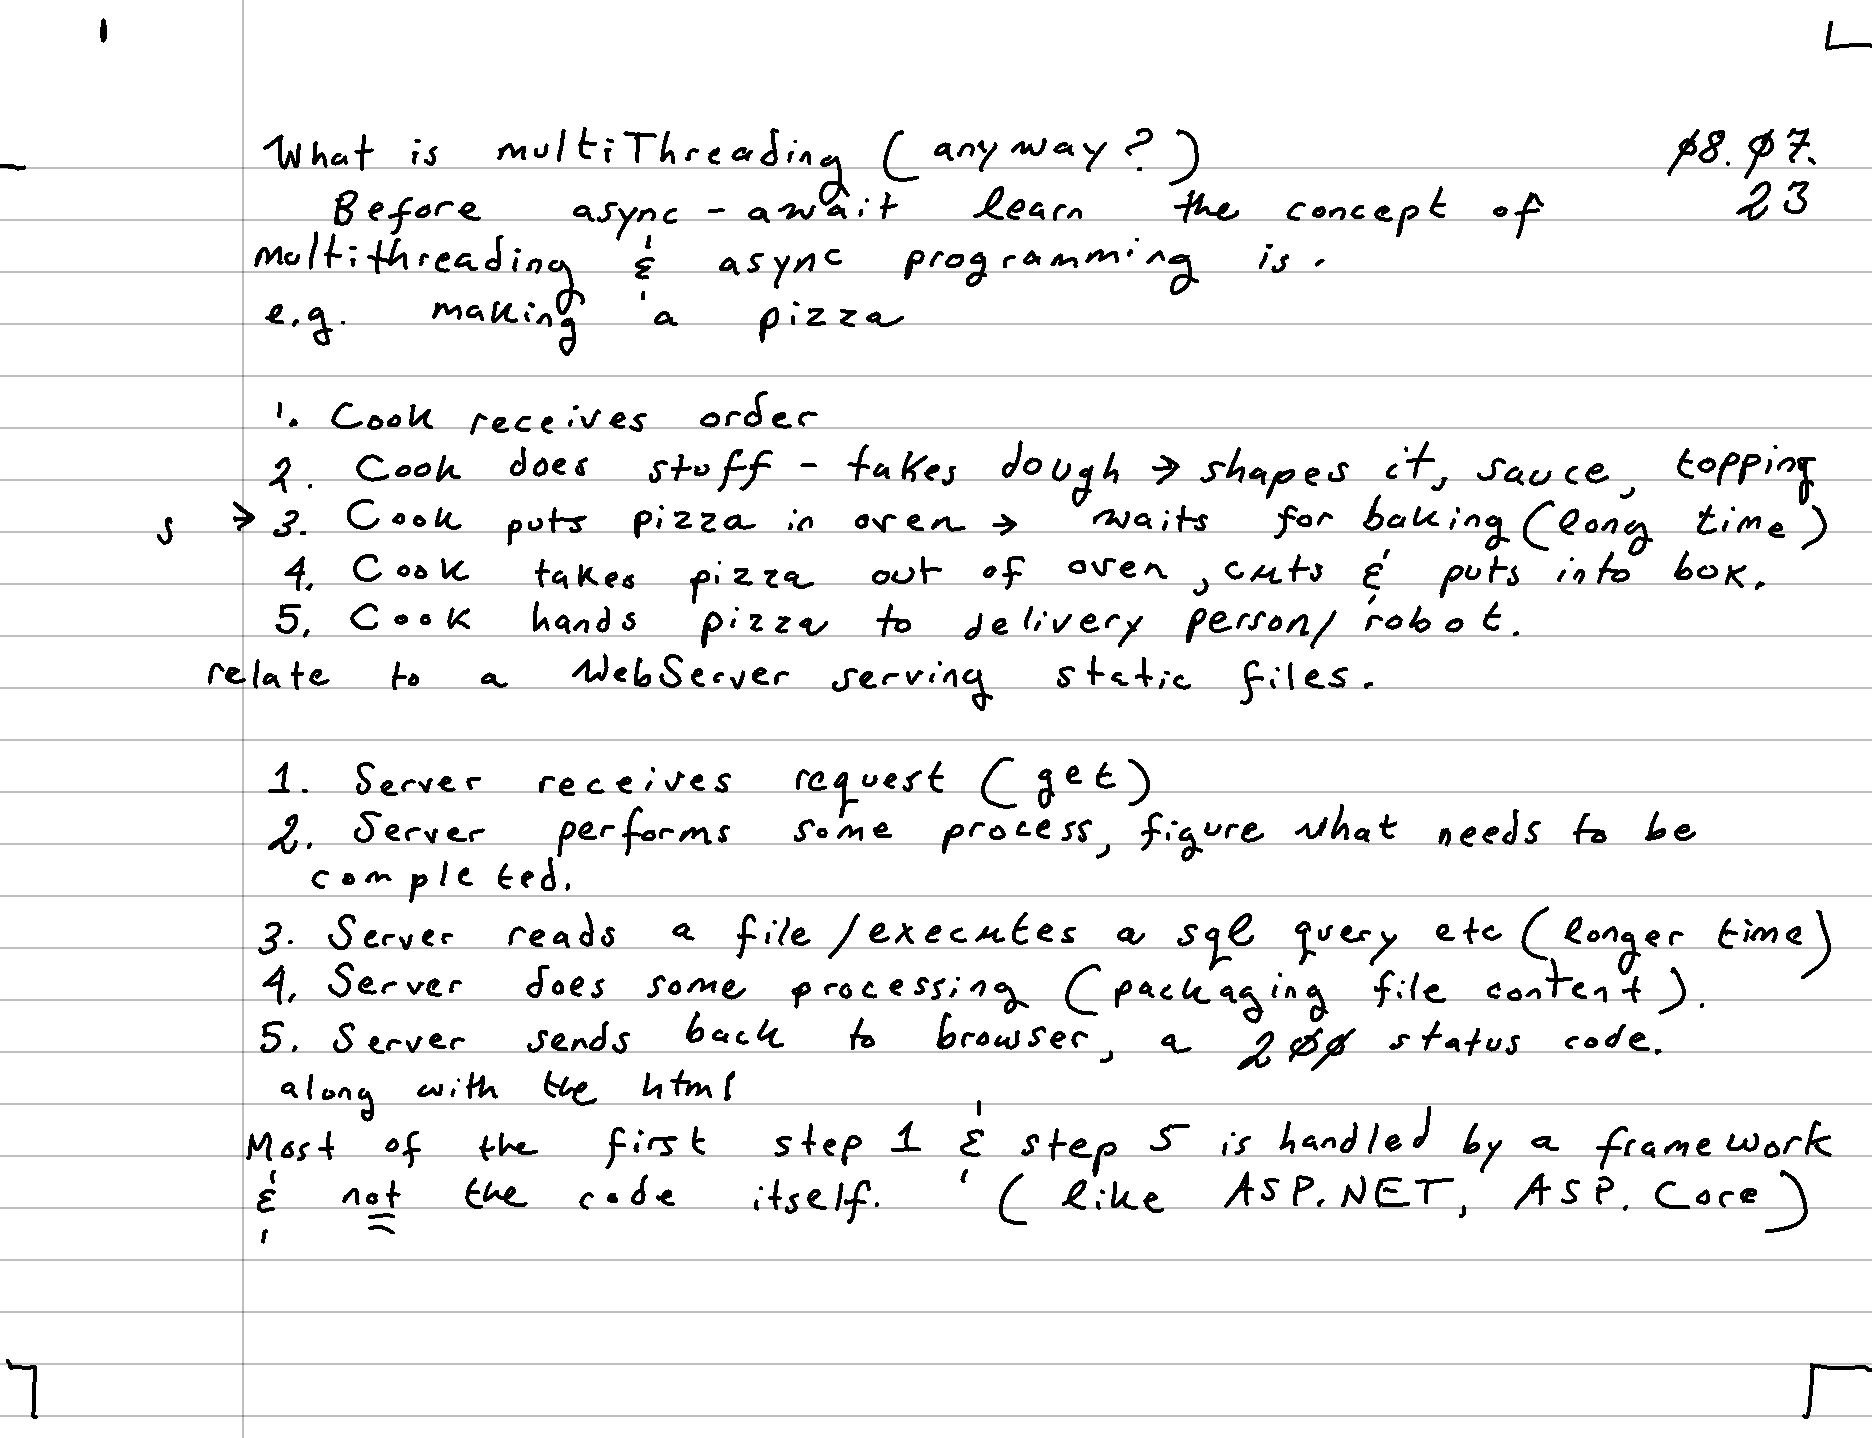 What is multiThreading (anyway?) 08.07.
23
Before async-await learn the concept of
multithreading & async programming is.
e.g. making a pizza
1. Cook receives order
2. Cook does stuff - takes dough → shapes it, sauce, topping
s → 3. Cook puts pizza in oven → waits for baking (long time)
4. Cook takes pizza out of oven, cuts & puts into box.
5. Cook hands pizza to delivery person/robot.
relate to a WebServer serving static files.
1. Server receives request (get)
2. Server performs some process, figure what needs to be
completed.
3. Server reads a file/executes a sql query etc (longer time)
4. Server does some processing (packaging file content).
5. Server sends back to browser, a 200 status code.
along with the html
Most of the first step 1 & step 5 is handled by a framework
& not the code itself. (like ASP.NET, ASP. Core)